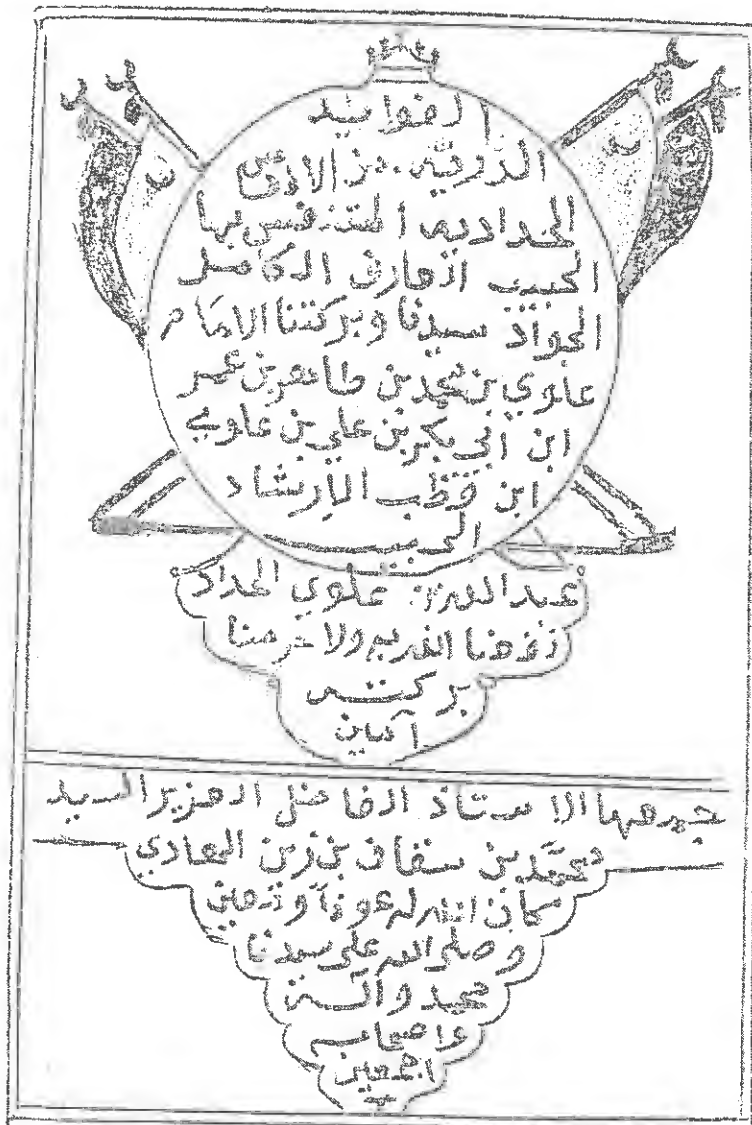 الفوائد
الدرية من الانفاس
الحدادية المتنفس بها
الحبيب العارف الكامل
الجواد سيدنا وبركتنا الامام
علوي بن محمد بن طاهر بن عمر
ابن ابي بكر بن علي بن علوي
ابن قطب الارشاد
الحبيب
عبدالله بن علوي الحداد
نفعنا الله به ولا حرمنا
بركته
آمين
جمعها الاستاذ الفاضل العزيز السيد
محمد بن سقاف بن زين الهادي
كان الله له عونا ومعين
وصلى الله على سيدنا
محمد وآله
واصحابه
اجمعين